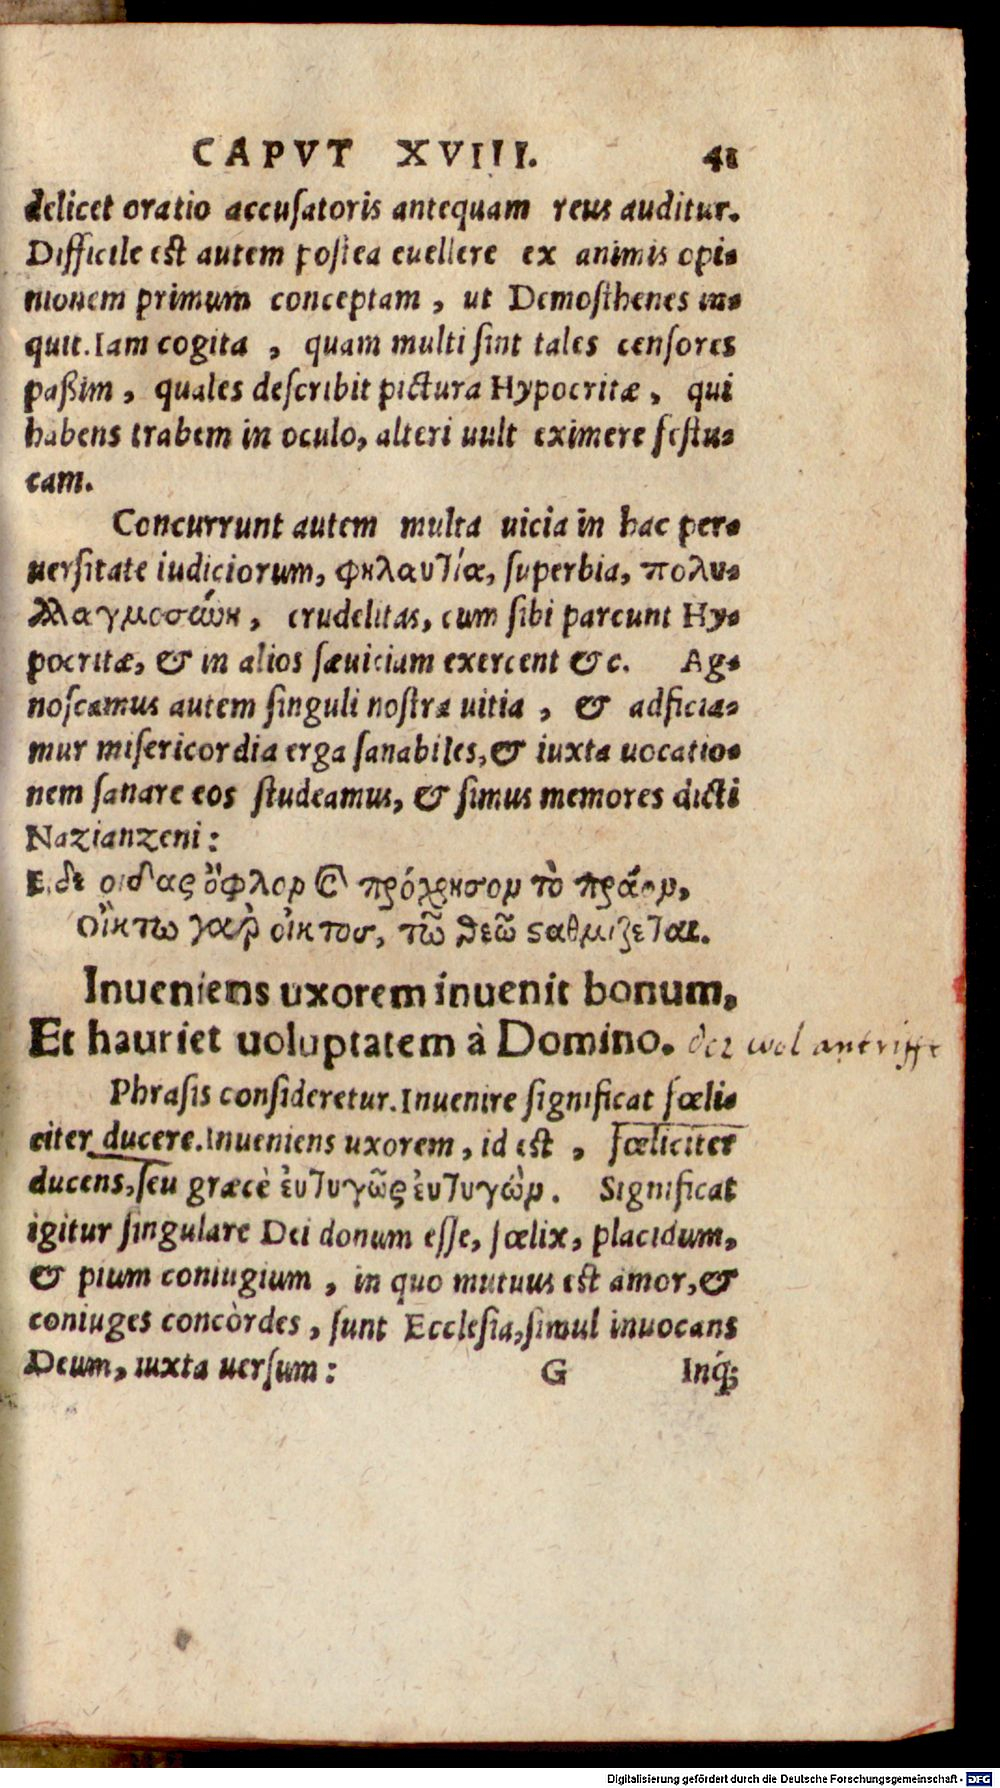 CAPVT XVIII. 41
delicet oratio accusatoris antequam reus auditur.
Difficile est autem postea euellere ex animis opi-
nionem primum conceptam, ut Demosthenes in-
quit. Iam cogita, quam multi sint tales censores
paßim, quales describit pictura Hypocritæ, qui
habens trabem in oculo, alteri uult eximere festu-
cam.
Concurrunt autem multa uicia in hac per-
uersitate iudiciorum, φηλαυτία, superbia, πολυ-
crudelitas, cum sibi parcunt Hy-
pocritæ, & in alios sæuiciam exercent &c. Ag-
noscamus autem singuli nostra uitia, & adficia-
mur misericordia erga sanabiles, & iuxta uocatio-
nem sanare eos studeamus, & simus memores dicti
Nazianzeni:
οιδας ὄφλον πρόχρησον τὸ πρᾶον,
οἴκτω γαρ οἶκτος, τῶ θεῶ σαθμίζεται.
Inueniens uxorem inuenit bonum,
Et hauriet uoluptatem à Domino. der wol antrifft
Phrasis consideretur. Inuenire significat fœli-
citer ducere. Inueniens uxorem, id est, fœliciter
ducens, seu græcè ἐυτυγῶς ἐυτυγών. Significat
igitur singulare Dei donum esse, fœlix, placidum,
& pium coniugium, in quo mutuus est amor, &
coniuges concòrdes, sunt Ecclesia, simul inuocans
Deum, iuxta uersum: G Inq́;
Digitalisierung gefördert durch die Deutsche Forschungsgemeinschaft - DFG